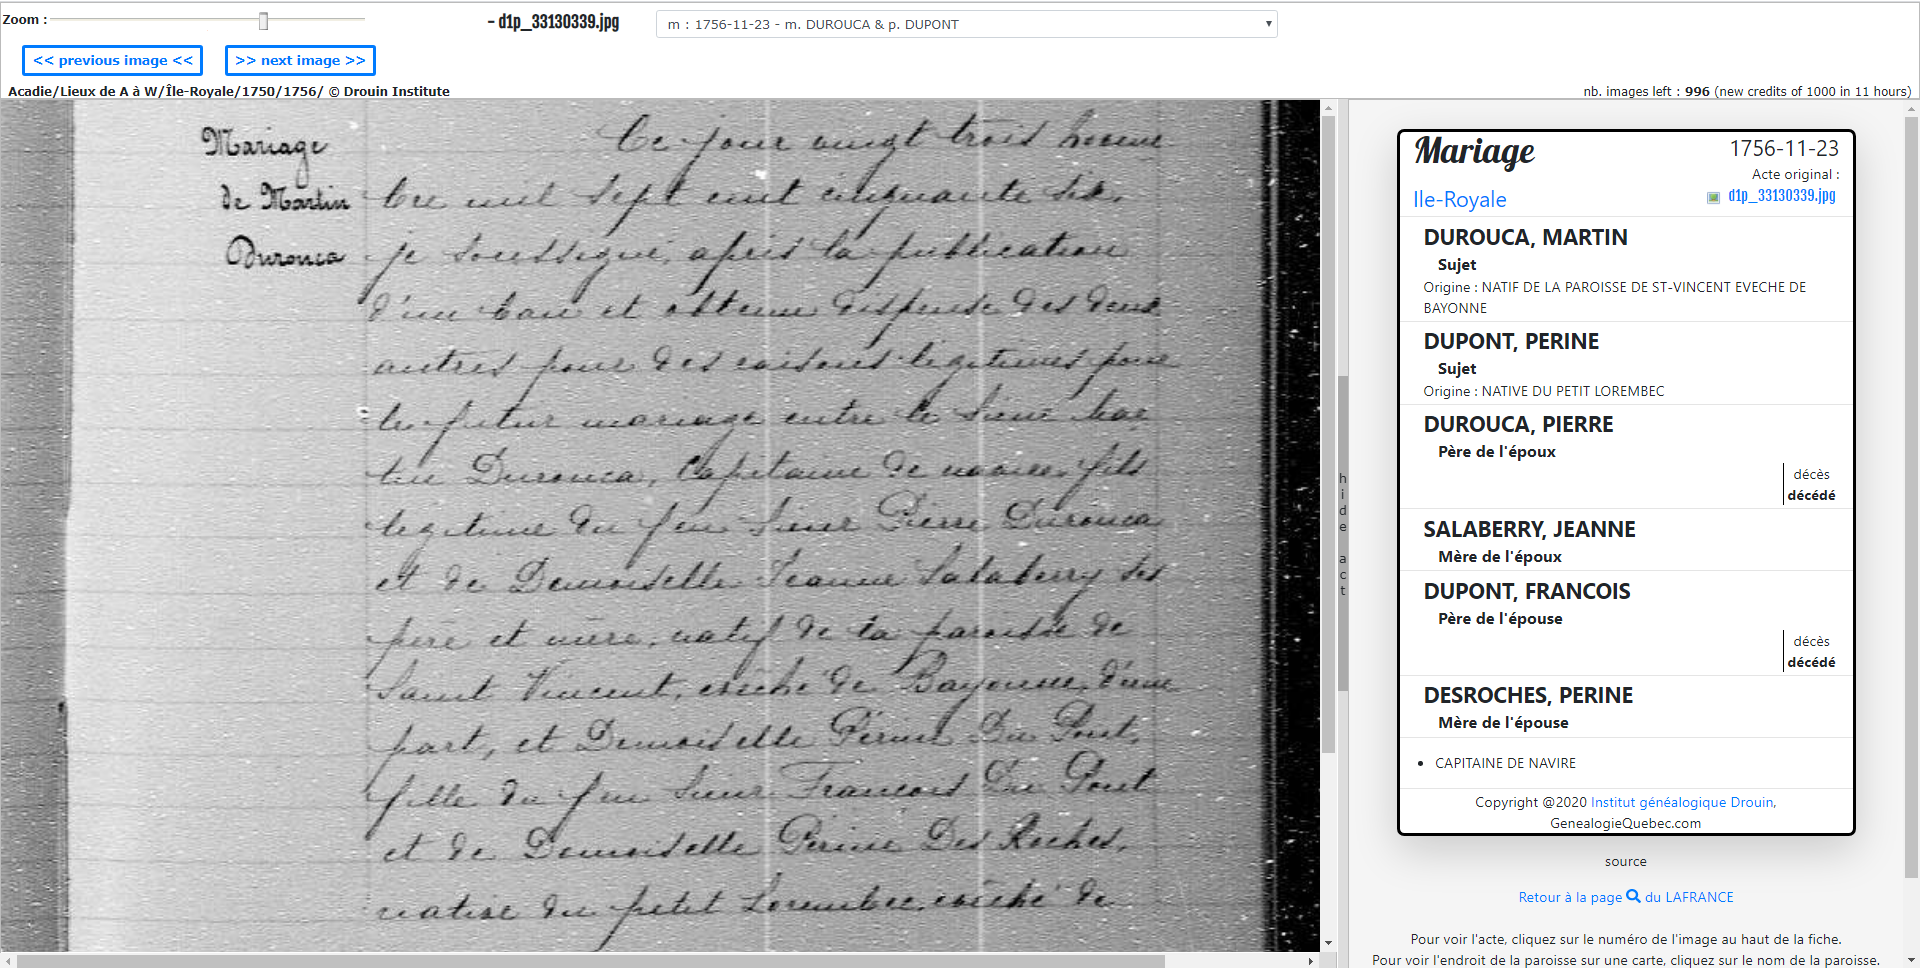 Zoom :
- d1p_33130339.jpg
m : 1756-11-23 - m. DUROUCA & p. DUPONT
<< previous image <<
>> next image >>
Acadie/Lieux de A à W/Île-Royale/1750/1756/ © Drouin Institute
nb. images left : 996 (new credits of 1000 in 11 hours)
Mariage
de Martin
Durouca
Ce jour vingt trois novem
bre mil sept cent cinquante six.
je soussigné, après la publication
d'un ban et obtenu dispense des deux
autres pour des raisons légitimes pour
le futur mariage entre le Sieur Mar
tin Durouca, Capitaine de navire, fils
legitime du feu Sieur Pierre Durouca
et de Demoiselle Jeanne Salaberry ses
père et mère, natif de la paroisse de
Saint Vincent, evêché de Bayonne, d'une
part, et Demoiselle Périne Du Pont,
fille du feu Sieur François Du Pont
et de Demoiselle Périne Des Roches,
native du petit Lorembec, evêché de
hide act
Mariage
1756-11-23
Acte original :
Ile-Royale
d1p_33130339.jpg
DUROUCA, MARTIN
Sujet
Origine : NATIF DE LA PAROISSE DE ST-VINCENT EVECHE DE
BAYONNE
DUPONT, PERINE
Sujet
Origine : NATIVE DU PETIT LOREMBEC
DUROUCA, PIERRE
Père de l'époux
décès
décédé
SALABERRY, JEANNE
Mère de l'époux
DUPONT, FRANCOIS
Père de l'épouse
décès
décédé
DESROCHES, PERINE
Mère de l'épouse
• CAPITAINE DE NAVIRE
Copyright @2020 Institut généalogique Drouin,
GenealogieQuebec.com
source
Retour à la page du LAFRANCE
Pour voir l'acte, cliquez sur le numéro de l'image au haut de la fiche.
Pour voir l'endroit de la paroisse sur une carte, cliquez sur le nom de la paroisse.